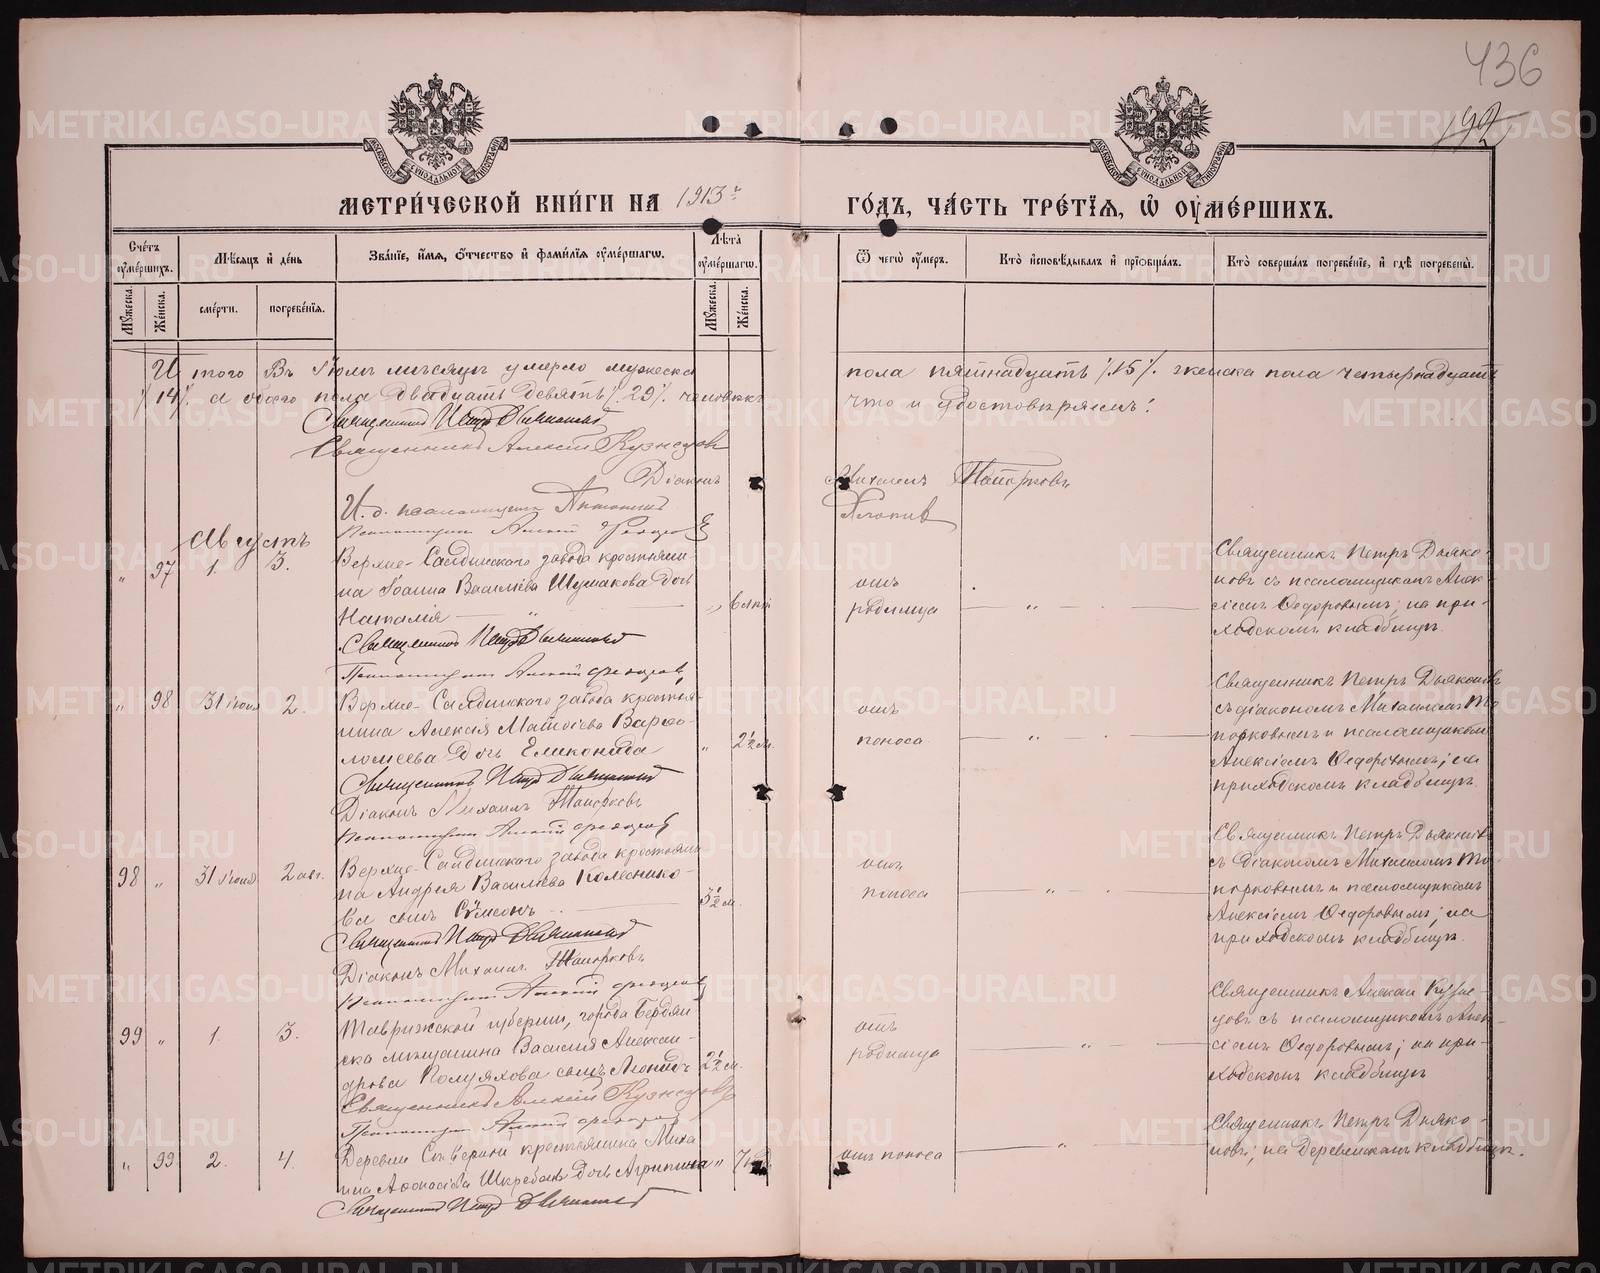 436
192
МЕТРИ́ЧЕСКОЙ КНИ́ГИ НА 1913 г. ГО́ДЪ, ЧА́СТЬ ТРЕ́ТІЯ, Ѡ ОУМЕ́РШИХЪ.
Сче́тъ оуме́ршихъ.
Мꙋжеска.
Же́нска.
Мѣ́сяцъ и де́нь
сме́рти.
погребе́нія.
Зва́ніе, и́мя, о́тчество и фами́лія оуме́ршагѡ.
Лѣ́та оуме́ршагѡ.
Мꙋжеска.
Же́нска.
Ѿ чегѡ̀ оу́меръ.
Кто̀ исповѣ́дывалъ и прїобща́лъ.
Кто̀ соверша́лъ погребе́ніе, и гдѣ̀ погребены̀.
Итого въ Іюлѣ мѣсяцѣ умерло мужеска пола пятнадцать /15/. женска пола четырнадцать
/14/. а обоего пола двадцать девять /29/. человѣкъ что и удостовѣряемъ:
Священникъ Петръ Дьяконовъ
Священникъ Алексій Кузнецовъ
Діаконъ Михаилъ Топорковъ
И. д. псаломщика
Псаломщикъ Алексій Ѳедоровъ
Августъ
" 97 1. 3. Верхне-Салдинскаго завода крестьяни-
на Іоанна Василіева Шумакова дочь
Наталія — " — " 6 лѣтъ отъ родимца — " —
Священникъ Петръ Дьяко-
новъ съ псаломщикомъ Алек-
сіемъ Ѳедоровымъ; на при-
ходскомъ кладбищѣ.
Священникъ Петръ Дьяконовъ
Псаломщикъ Алексій Ѳедоровъ
" 98 31 іюля 2. Верхне-Салдинскаго завода крестья-
нина Алексія Матѳіева Варѳо-
ломеева дочь Еликонида " 2½ м. отъ поноса — " —
Священникъ Петръ Дьяконовъ
съ діакономъ Михаиломъ То-
порковымъ и псаломщикомъ
Алексіемъ Ѳедоровымъ; на
приходскомъ кладбищѣ.
Священникъ Петръ Дьяконовъ
Діаконъ Михаилъ Топорковъ
Псаломщикъ Алексій Ѳедоровъ
98 " 31 іюля 2 авг. Верхне-Салдинскаго завода крестьяни-
на Андрея Василіева Колеснико-
ва сынъ Сѵмеонъ — 3½ м. отъ поноса — " —
Священникъ Петръ Дьяконовъ
съ діакономъ Михаиломъ То-
порковымъ и псаломщикомъ
Алексіемъ Ѳедоровымъ; на
приходскомъ кладбищѣ.
Священникъ Петръ Дьяконовъ
Діаконъ Михаилъ Топорковъ
Псаломщикъ Алексій Ѳедоровъ
99 " 1. 3. Таврижской губерніи, города Бердян-
ска мѣщанина Василія Алексан-
дрова Полуяхова сынъ Леонидъ 2½ м. отъ родимца — " —
Священникъ Алексій Кузне-
цовъ съ псаломщикомъ Алек-
сіемъ Ѳедоровымъ; на при-
ходскомъ кладбищѣ
Священникъ Алексій Кузнецовъ
Псаломщикъ Алексій Ѳедоровъ
" 99 2. 4. Деревни Сѣверной крестьянина Миха-
ила Аѳонасіева дочь Агрипина " отъ поноса — " —
Священникъ Петръ Дьяко-
новъ; на деревенскомъ кладбищѣ.
Священникъ Петръ Дьяконовъ
METRIKI.GASO-URAL.RU